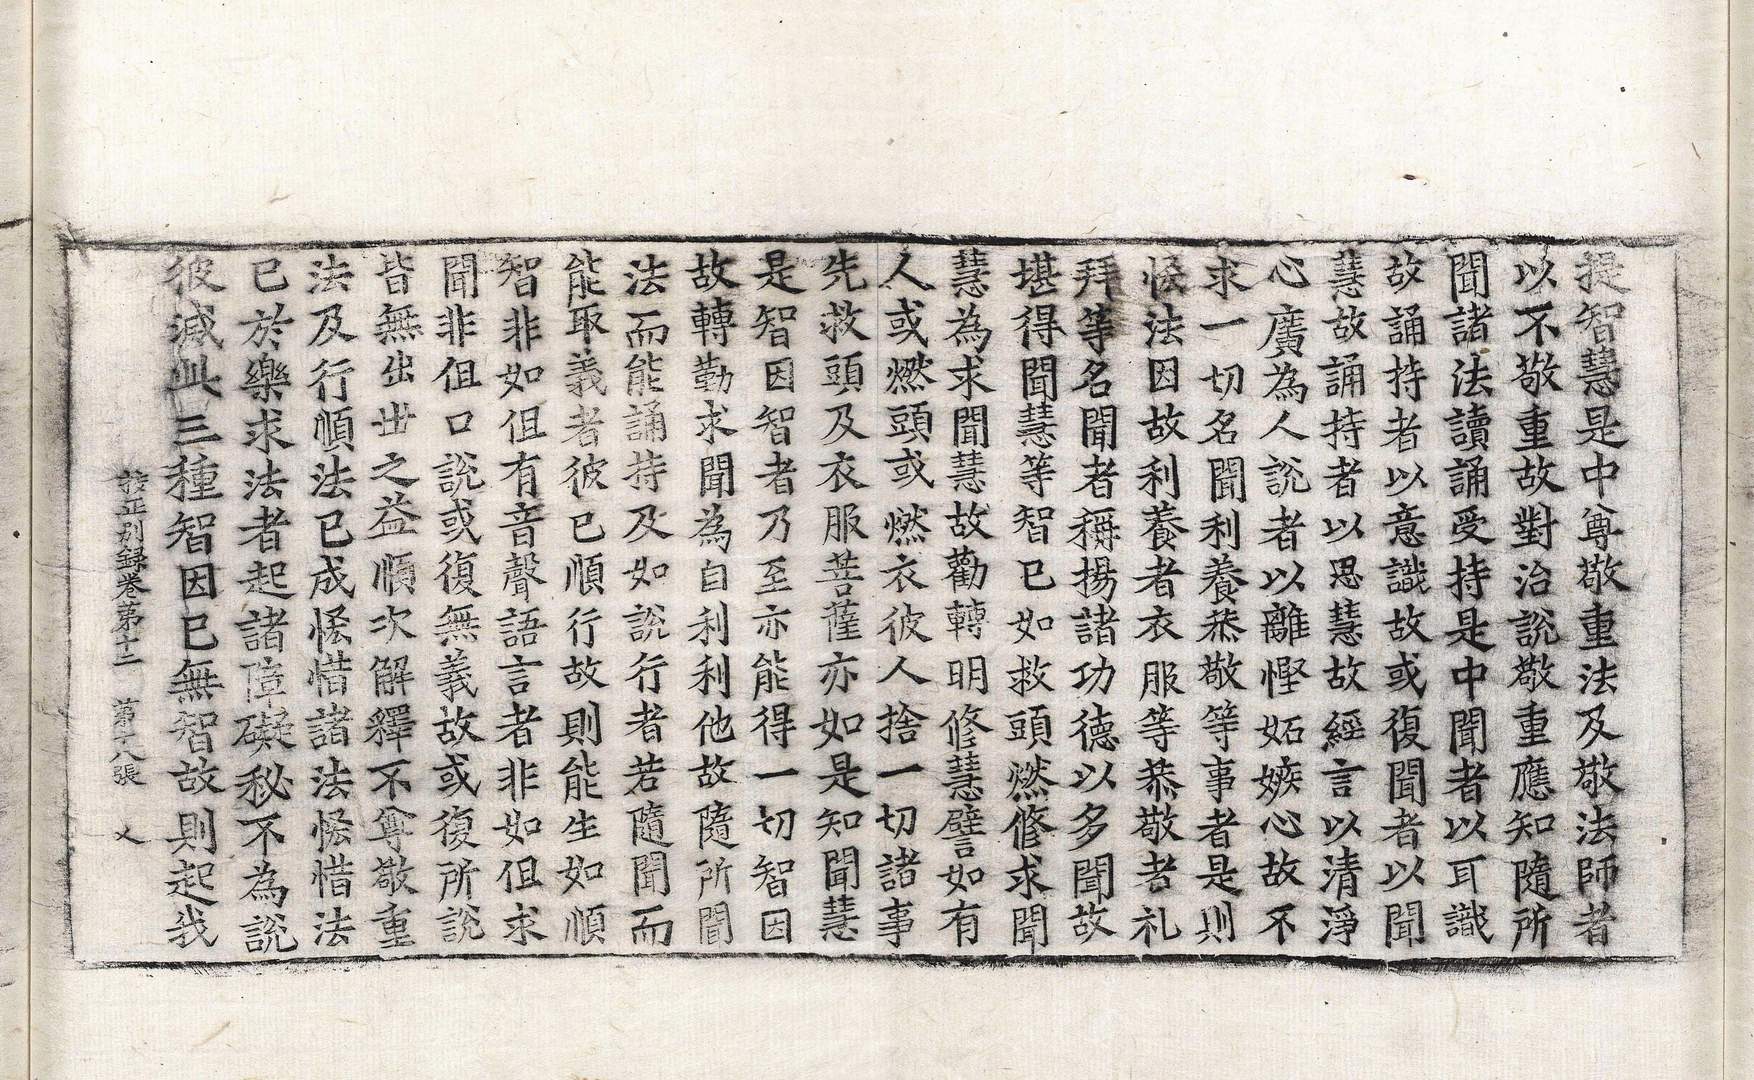 提智慧是中尊敬重法及敬法師者
以不敬重故對治說敬重應知隨所
聞諸法讀誦受持是中聞者以耳識
故誦持者以意識故或復聞者以聞
慧故誦持者以思慧故經言以清淨
心廣為人說者以離慳妬嫉心故不
求一切名聞利養恭敬等事者是則
恡法因故利養者衣服等恭敬者礼
拜等名聞者稱揚諸功德以多聞故
堪得聞慧等智已如救頭燃修求聞
慧為求聞慧故勸轉明修慧譬如有
人或燃頭或燃衣彼人捨一切諸事
先救頭及衣服菩薩亦如是知聞慧
是智因智者乃至亦能得一切智因
故轉勤求聞為自利利他故隨所聞
法而能誦持及如說行者若隨聞而
能取義者彼已順行故則能生如順
智非如但有音聲語言者非如但求
聞非但口說或復無義故或復所說
皆無出世之益順次解釋不尊敬重
法及行順法已成恡惜諸法恡惜法
已於樂求法者起諸障礙秘不為說
彼滅此三種智因已無智故則起我
校正別錄卷第十二　第十八張　乂